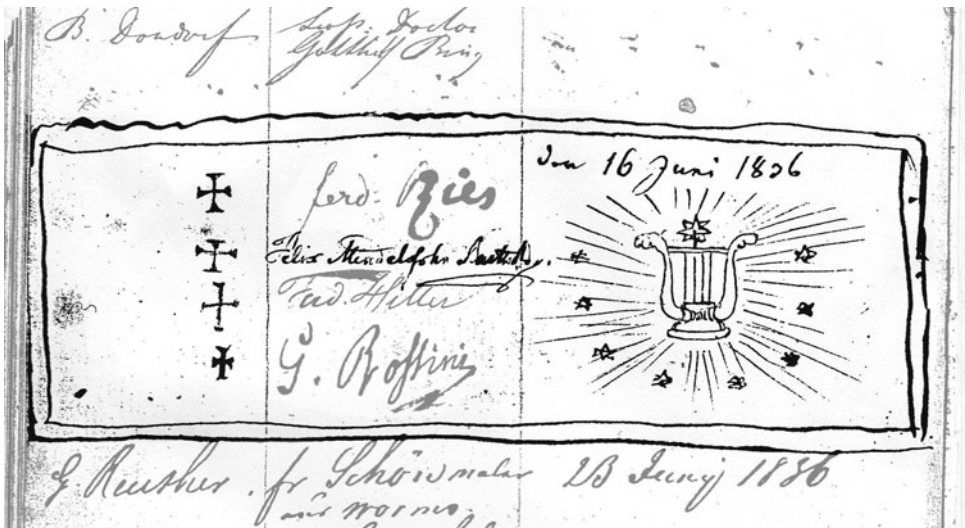 B. Dondorf
Doctor
Gotthelf
den 16 Juni 1836
ferd. Ries
Felix Mendelssohn Bartholdy.
Ferd. Hiller
G. Rossini
G. Reuther. fr Schönmaler 23 Juny 1836
aus Worms.